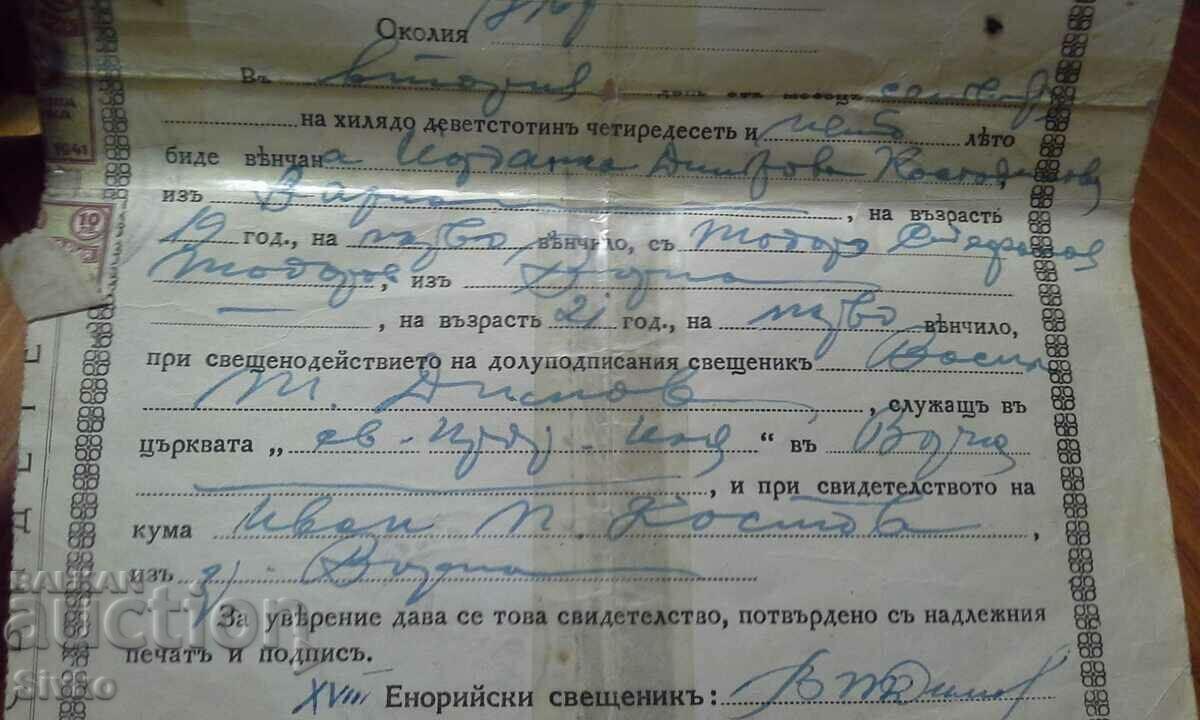 Околия
Въ втория день отъ месецъ
на хилядо деветстотинъ четиредесеть и лѣто
биде вѣнчана Йорданка Димитрова
изъ Варна, на възрасть
19 год., на първо вѣнчило, съ Тодоръ Стефановъ
Тодоровъ, изъ Варна
— , на възрасть 21 год., на първо вѣнчило,
при свещенодействието на долуподписания свещеникъ Василъ
Т. Димовъ, служащъ въ
църквата „св. “ въ Варна
, и при свидетелството на
кума Иван П. Костовъ,
изъ гр. Варна
За увѣрение дава се това свидетелство, потвърдено съ надлежния
печатъ и подпись.
XVIII Енорийски свещеникъ:
1941
10
ДЕТЕ
БАЛКАН
auction
Sivko